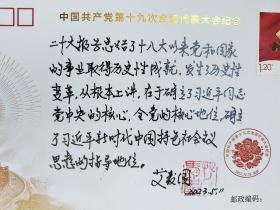 中国共产党第十九次全国代表大会纪念
1.20
二十大报告总结了十八大以来党和国家
的事业取得历史性成就，发生了历史性
变革，从根本上讲，在于确立了习近平同志
党中央的核心、全党的核心地位，确立
了习近平新时代中国特色社会主义
思想的指导地位。
2023.5.11
邮政编码：